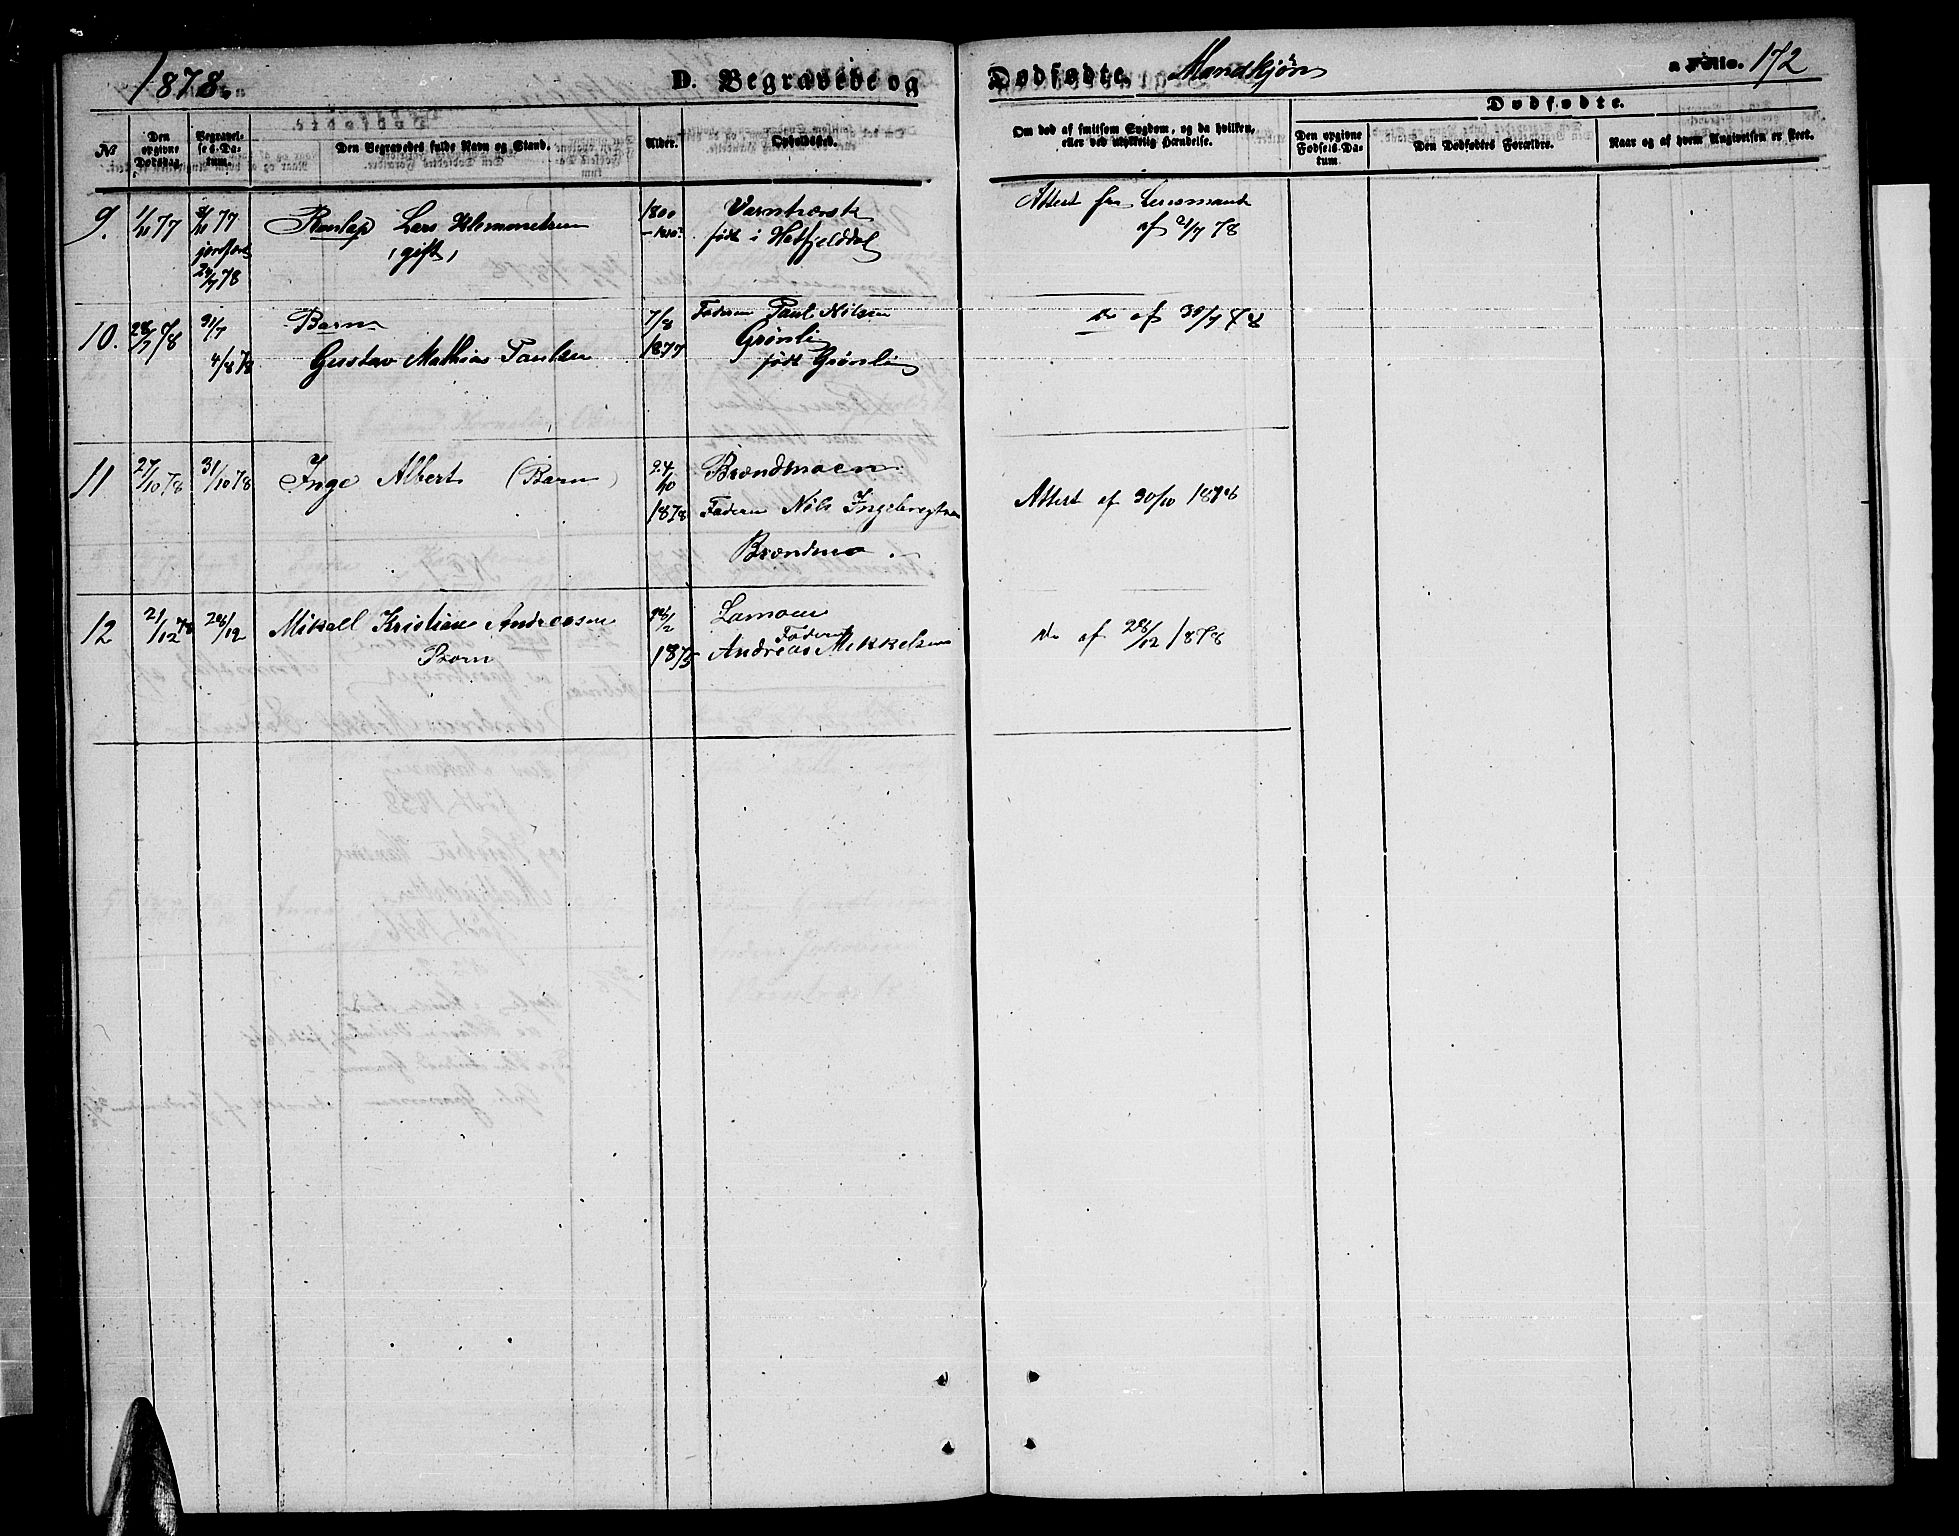 1878.
D. Begravede og Dødfødte. Mandkjøn
Folio. 172
Dødfødte.
No
Den opgivne Dødsdag.
Begravelses-Datum.
Den Begravedes fulde Navn og Stand.
Alder.
Opholdssted.
Om død af smitsom Sygdom, og da hvilken, eller ved ulykkelig Hændelse.
Den opgivne Fødsels-Datum.
Den Dødfødtes Forældre.
Naar og af hvem Angivelsen er skeet.
9.
77
77
jordfæst
24/7 78
Lars Klemmetsen
(gift)
1800
Varntræsk
født i Hatfjelddal
Attest fra Lensmand
af 21/7 78
10.
28/7 78
31/7
4/8 78
Barn
Gustav Mathias Paulsen
7/8
1877
Faderen Paul Nilsen
Grønli
født Grønli
Do af 30/7 78
11
27/10 78
31/10 78
Inge Albert (Barn)
24/10
1878
Brændmoen
Faderen Nils Ingebregtsen
Brændmo
Attest af 30/10 1878
12
21/12 78
28/12
Mikael Kristian Andreasen
Barn
1875
Lamoen
Faderen
Andreas Mikkelsen
Do af 28/12 1878